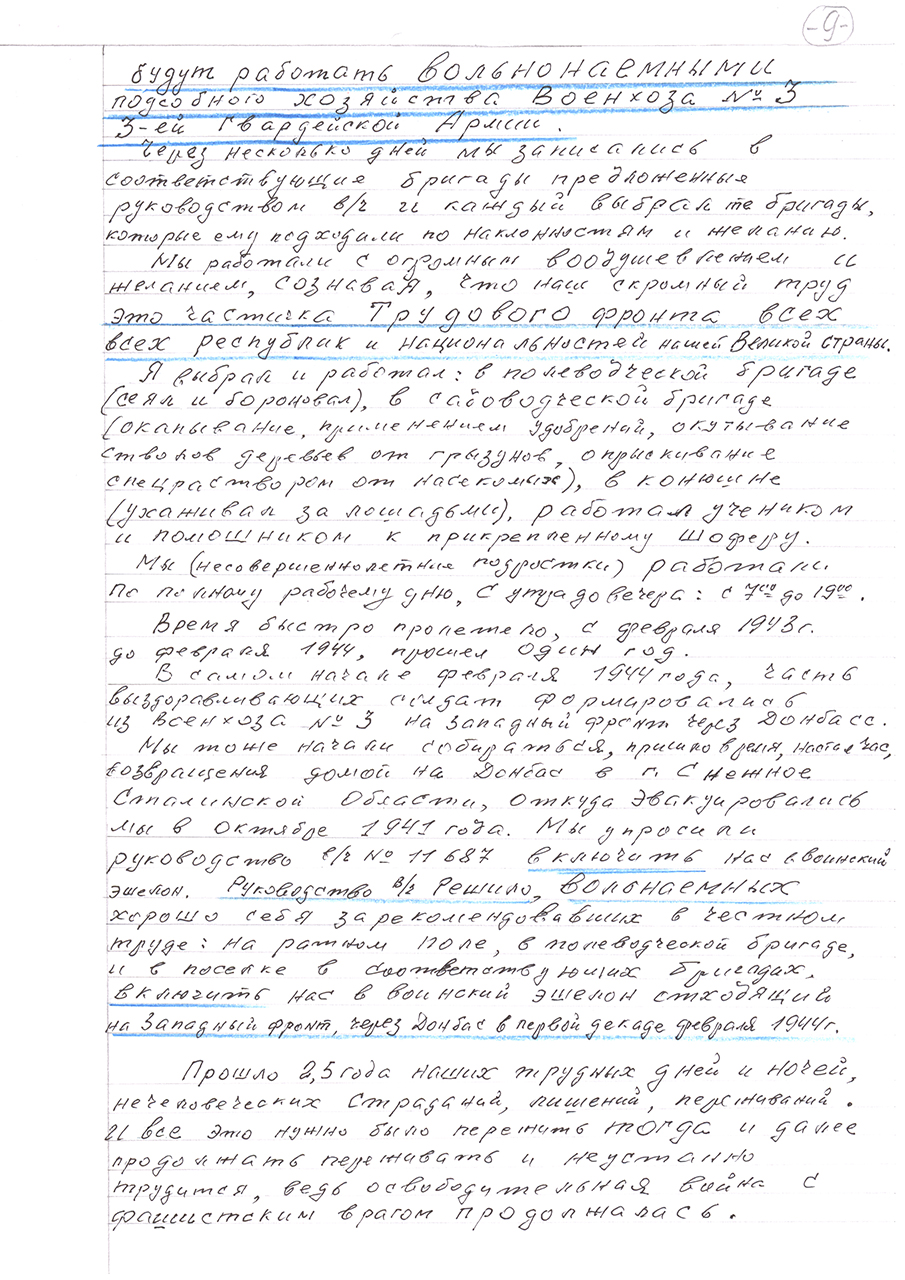 -9-
будут работать вольнонаемными
подсобного хозяйства Военхоза № 3
3-ей Гвардейской Армии.
Через несколько дней мы записались в
соответствующие бригады предложенные
руководством в/ч и каждый выбрал те бригады,
которые ему подходили по наклонностям и желанию.
Мы работали с огромным воодушевлением и
желанием, сознавая, что наш скромный труд
это частичка Трудового фронта всех
всех республик и национальностей нашей Великой страны.
Я выбрал и работал: в полеводческой бригаде
(сеял и бороновал), в садоводческой бригаде
(окапывание, применением удобрений, окутывание
стволов деревьев от грызунов, опрыскивание
спецраствором от насекомых), в конюшне
(ухаживал за лошадьми), работал учеником
и помошником к прикрепленному шоферу.
Мы (несовершеннолетние подростки) работали
по полному рабочему дню, с утра до вечера: с 7°° до 19°°.
Время быстро пролетело, с февраля 1943г.
до февраля 1944, прошел один год.
В самом начале февраля 1944 года, часть
выздоравливающих солдат формировались
из Военхоза № 3 на западный фронт через Донбасс.
Мы тоже начали собираться, пришло время, настал час,
возвращения домой на Донбас в г. Снежное
Сталинской Области, откуда эвакуировались
мы в октябре 1941 года. Мы упросили
руководство в/ч № 11687 включить нас в воинский
эшелон. Руководство в/ч Решило, вольнаемных
хорошо себя зарекомендовавших в честном
труде: на ратном поле, в полеводческой бригаде,
и в поселке в соответствующих бригадах,
включить нас в воинский эшелон отходящий
на Западный фронт, через Донбас в первой декаде февраля 1944г.
Прошло 2,5 года наших трудных дней и ночей,
нечеловеческих страданий, лишений, переживаний.
И все это нужно было пережить тогда и далее
продолжать переживать и неустанно
трудится, ведь освободительная война с
фашистским врагом продолжалась.